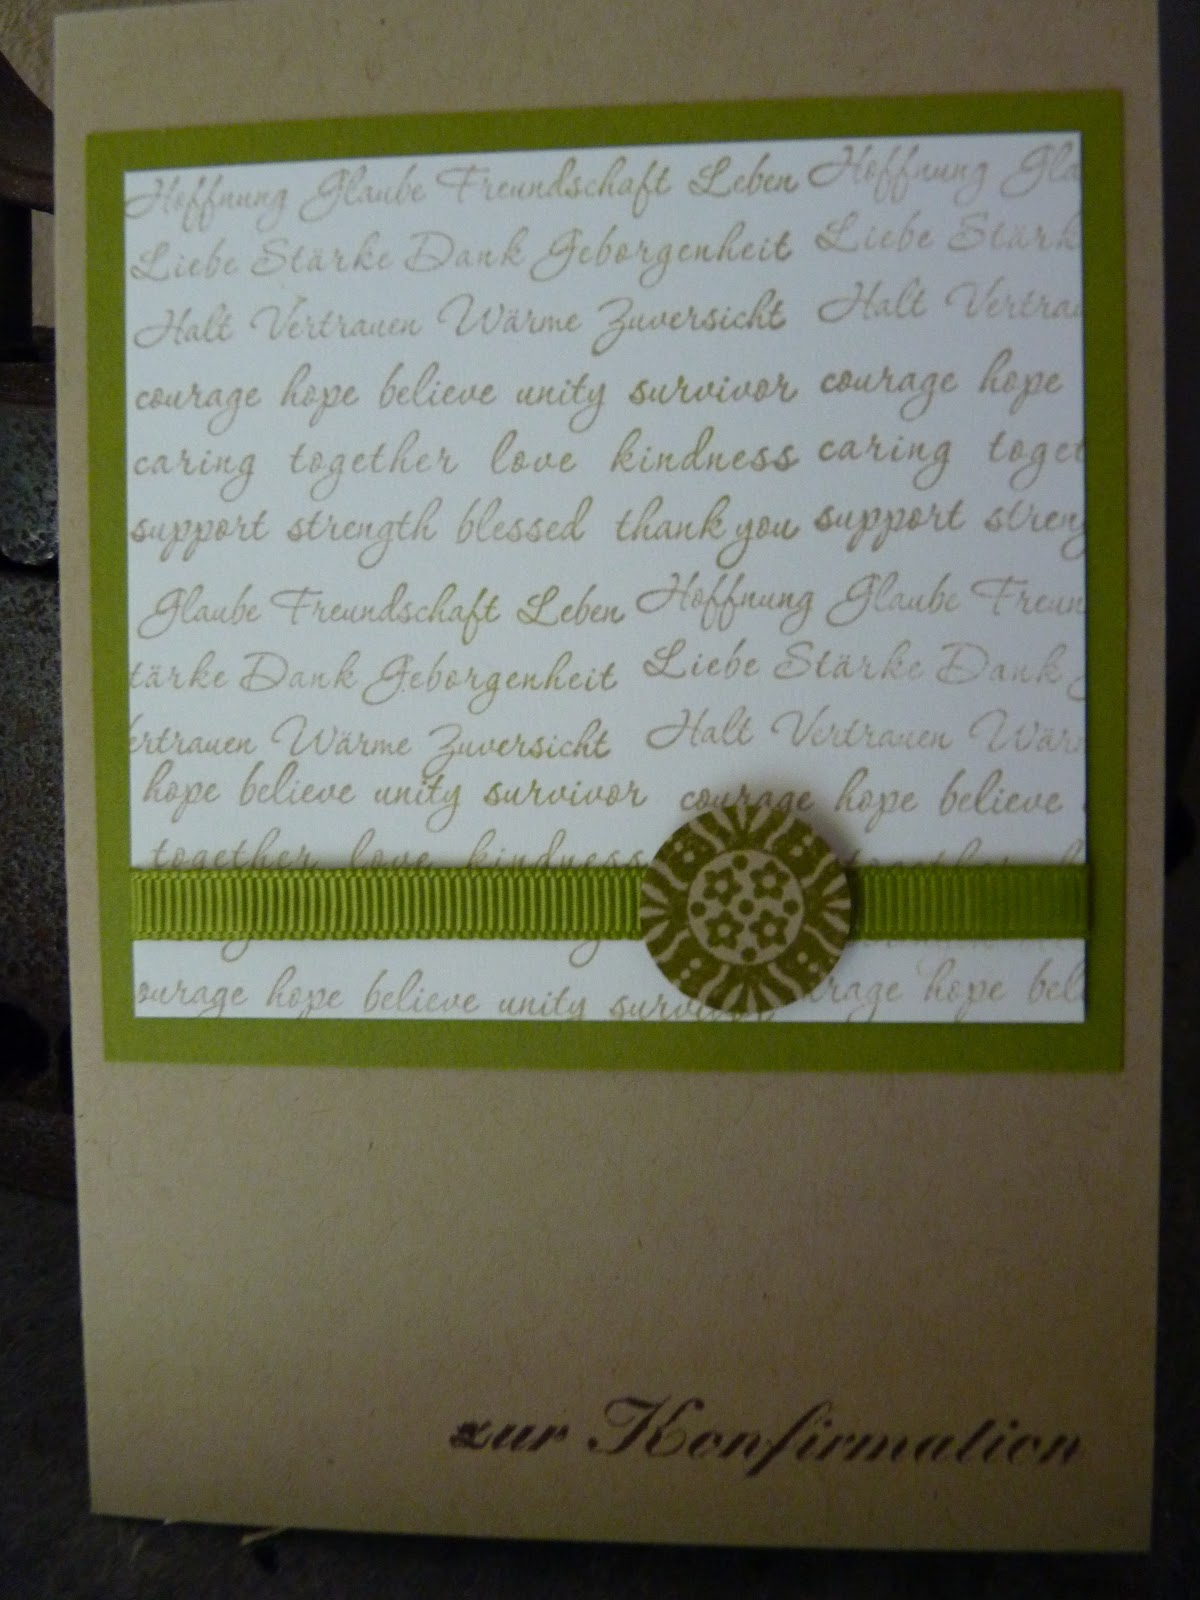 Hoffnung Glaube Freundschaft Leben Hoffnung Gla
Liebe Stärke Dank Geborgenheit Liebe Stärk
Halt Vertrauen Wärme Zuversicht Halt Vertrau
courage hope believe unity survivor courage hope
caring together love kindness caring toget
support strength blessed thank you support streng
Glaube Freundschaft Leben Hoffnung Glaube Freun
tärke Dank Geborgenheit Liebe Stärke Dank
ertrauen Wärme Zuversicht Halt Vertrauen Wärm
hope believe unity survivor courage hope believe
together love kindness together
ourage hope believe unity surviv urage hope bel
zur Konfirmation